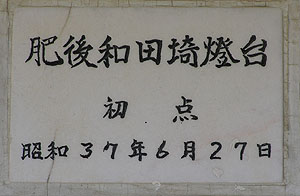 肥後和田埼燈台
初点
昭和37年6月27日